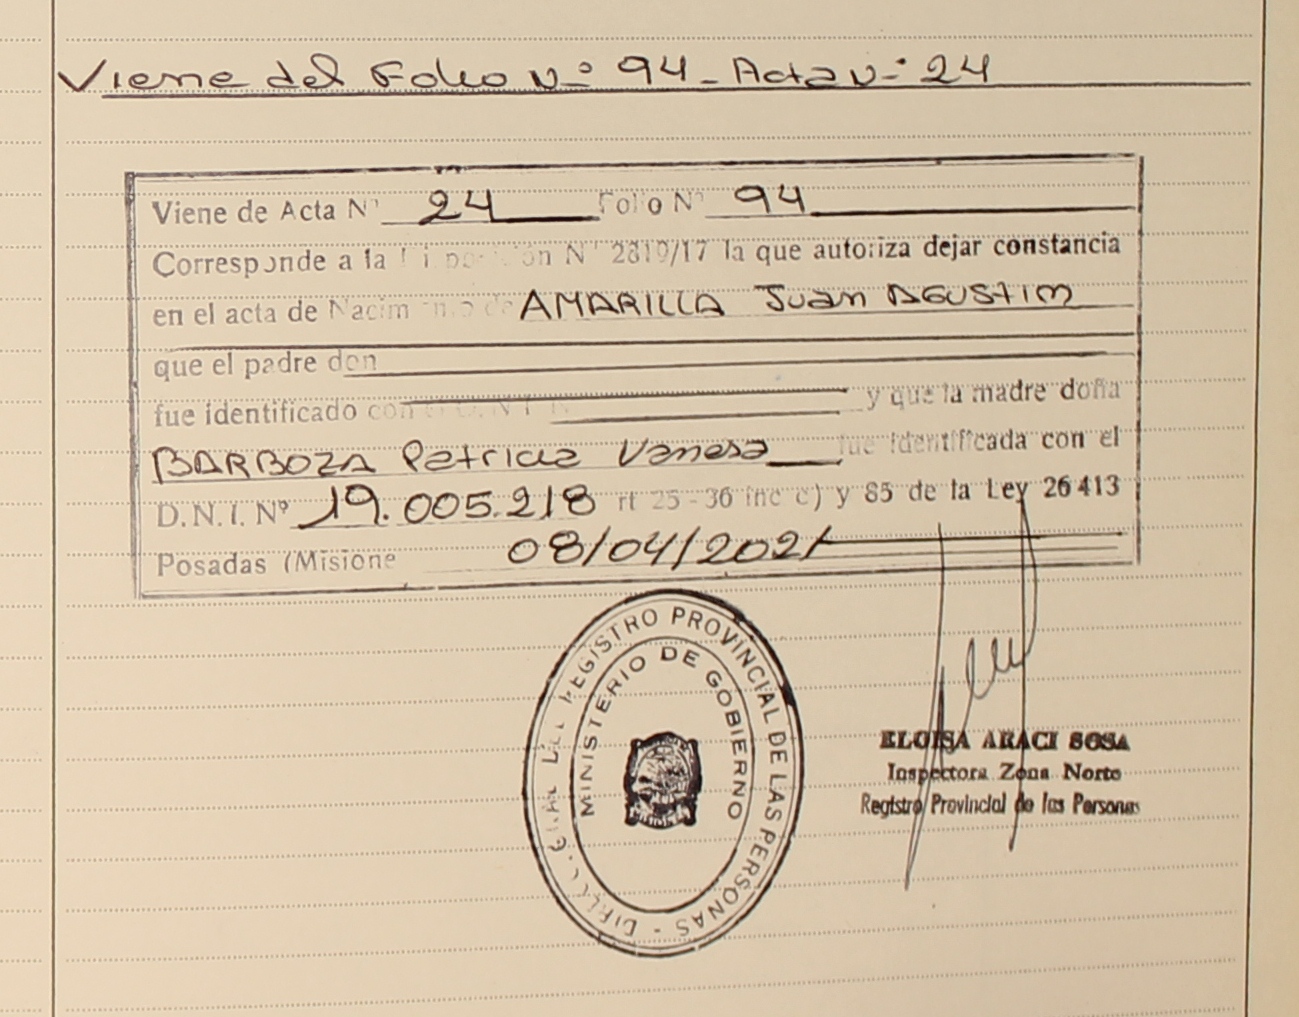 Viene del Folio Nº 94 - Acta Nº 24
Viene de Acta Nº 24 Folio Nº 94
Corresponde a la Disposición Nº 2819/17 la que autoriza dejar constancia
en el acta de Nacimiento de AMARILLA Juan AGUSTIN
que el padre don
fue identificado con el D.N.I. Nº y que la madre doña
BARBOZA Patricia Vanesa fue identificada con el
D.N.I. Nº 19.005.218 rt 25 - 36 inc c) y 85 de la Ley 26413
Posadas (Misione 08/04/2021
DIRECC. GRAL DEL REGISTRO PROVINCIAL DE LAS PERSONAS -
MINISTERIO DE GOBIERNO
ELOISA ARACI SOSA
Inspectora Zona Norte
Registro Provincial de las Personas